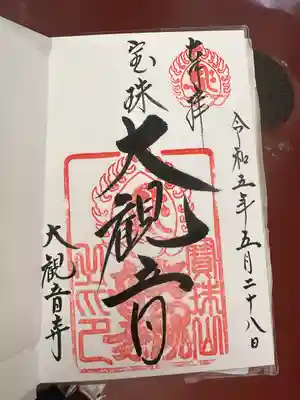 奉拝
令和五年五月二十八日
宝珠
大観音
大観音寺
寶珠山